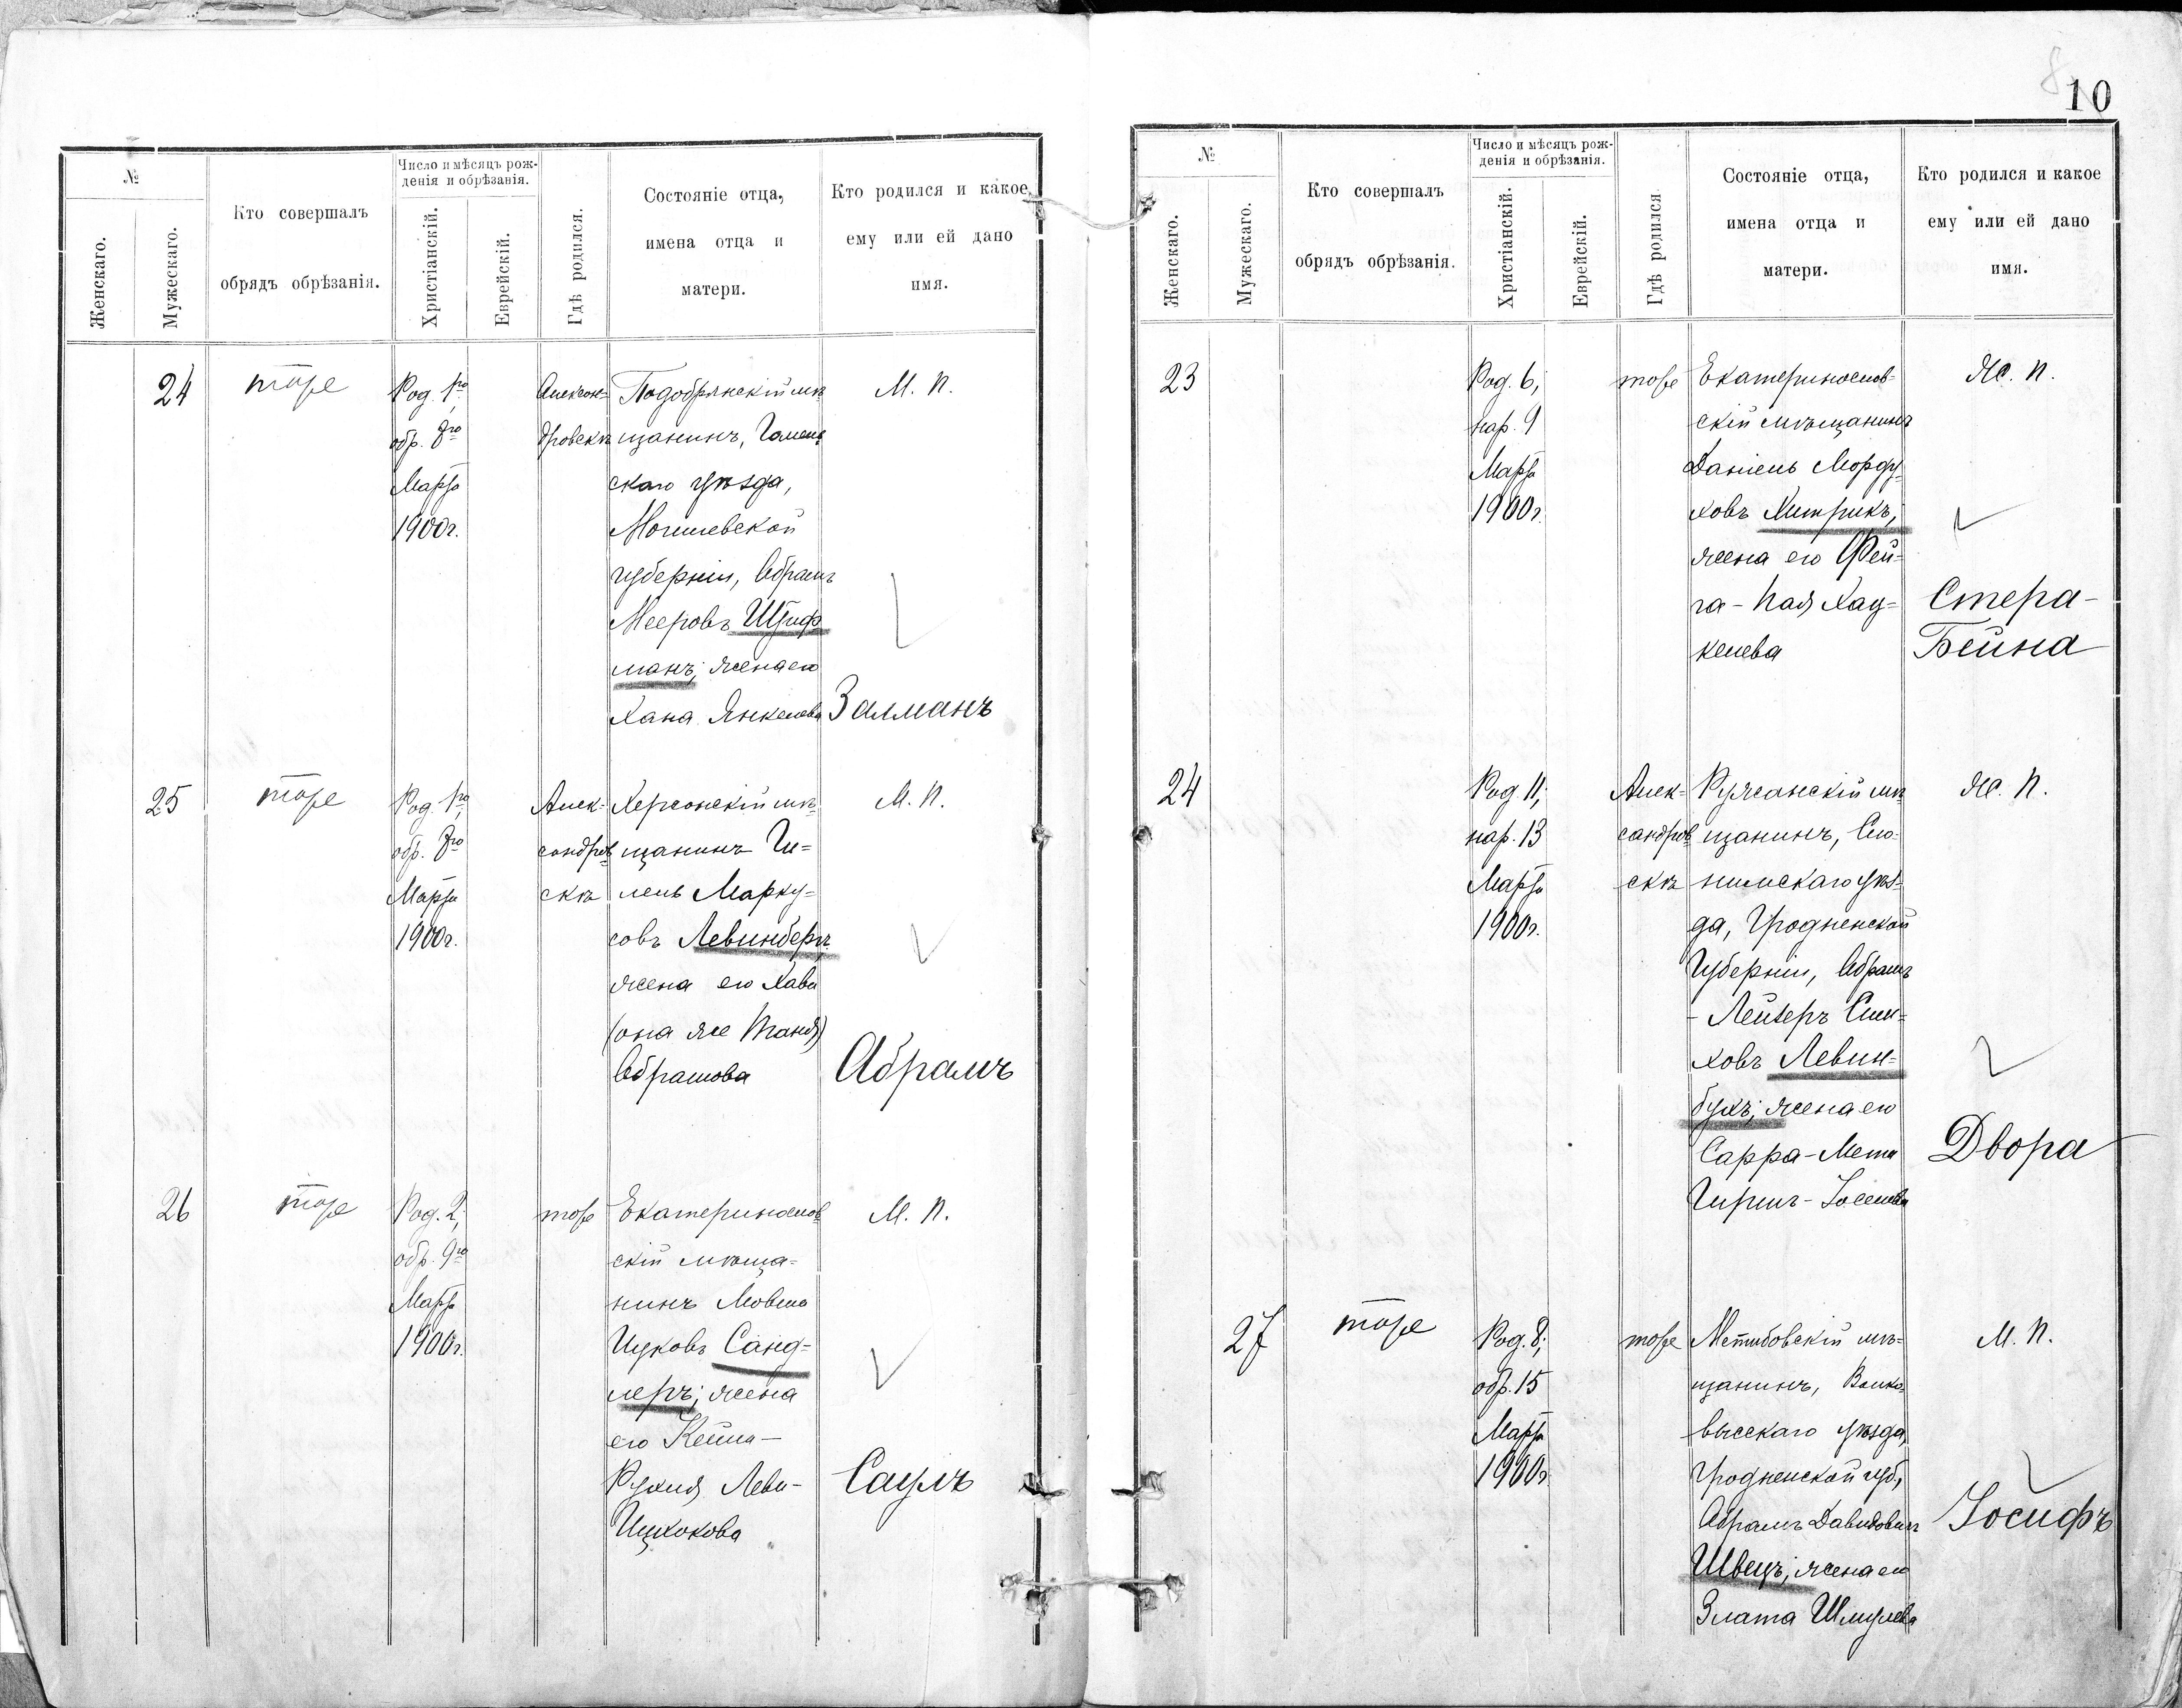 №
Женскаго.
Мужескаго.
Кто совершалъ
обрядъ обрѣзанія.
Число и мѣсяцъ рож-
денія и обрѣзанія.
Христіанскій.
Еврейскій.
Гдѣ родился.
Состояніе отца,
имена отца и
матери.
Кто родился и какое
ему или ей дано
имя.
24
тоже
Род. 1го,
обр. 8го
Марта
1900г.
Алексан-
дровскѣ
Подобрянскій мѣ-
щанинъ, Гомель-
скаго уѣзда,
Могилевской
губерніи, Абрамъ
Мееровъ Штиф-
манъ; жена его
Хана Янкелева
М. п.
Залманъ
25
тоже
Род. 1го,
обр. 8го
Марта
1900г.
Алек-
сандров
скѣ
Херсонскій мѣ-
щанинъ Ги-
лель Марку-
совъ Левинбергъ,
жена его Хава
(она же Таня)
Абрамова
М. п.
Абрамъ
26
тоже
Род. 2,
обр. 9го
Марта
1900г.
тоже
Екатеринослав
скій мѣща-
нинъ Мовша
Ицковъ Санд-
леръ; жена
его Кейла-
Рухля Леви-
Ицхокова
М. п.
Саулъ
10
№
Женскаго.
Мужескаго.
Кто совершалъ
обрядъ обрѣзанія.
Число и мѣсяцъ рож-
денія и обрѣзанія.
Христіанскій.
Еврейскій.
Гдѣ родился
Состояніе отца,
имена отца и
матери.
Кто родился и какое
ему или ей дано
имя.
23
Род. 6,
нар. 9
Марта
1900г.
тоже
Екатеринослав-
скій мѣщанинъ
Даніель Морду-
ховъ Хитрикъ,
жена его Фей-
га-Пая Хац-
келева
Ж. п.
Стера-
Бейна
24
Род. 11,
нар. 13
Марта
1900г.
Алек-
сандров
скѣ
Ружанскій мѣ-
щанинъ, Сло-
нимскаго уѣз-
да, Гродненской
Губерніи, Абрамъ
-Лейзеръ Сим-
ховъ Левин-
букъ; жена его
Сарра-Мета
Гиршъ-Іоселева
Ж. п.
Двора
27
тоже
Род. 8,
обр. 15
Марта
1900г.
тоже
Мстибовскій мѣ-
щанинъ, Волко-
выскаго уѣзда,
Гродненской губ.,
Абрамъ Давидовичъ
Швецъ; жена его
Злата Шмулева
М. п.
Іосифъ